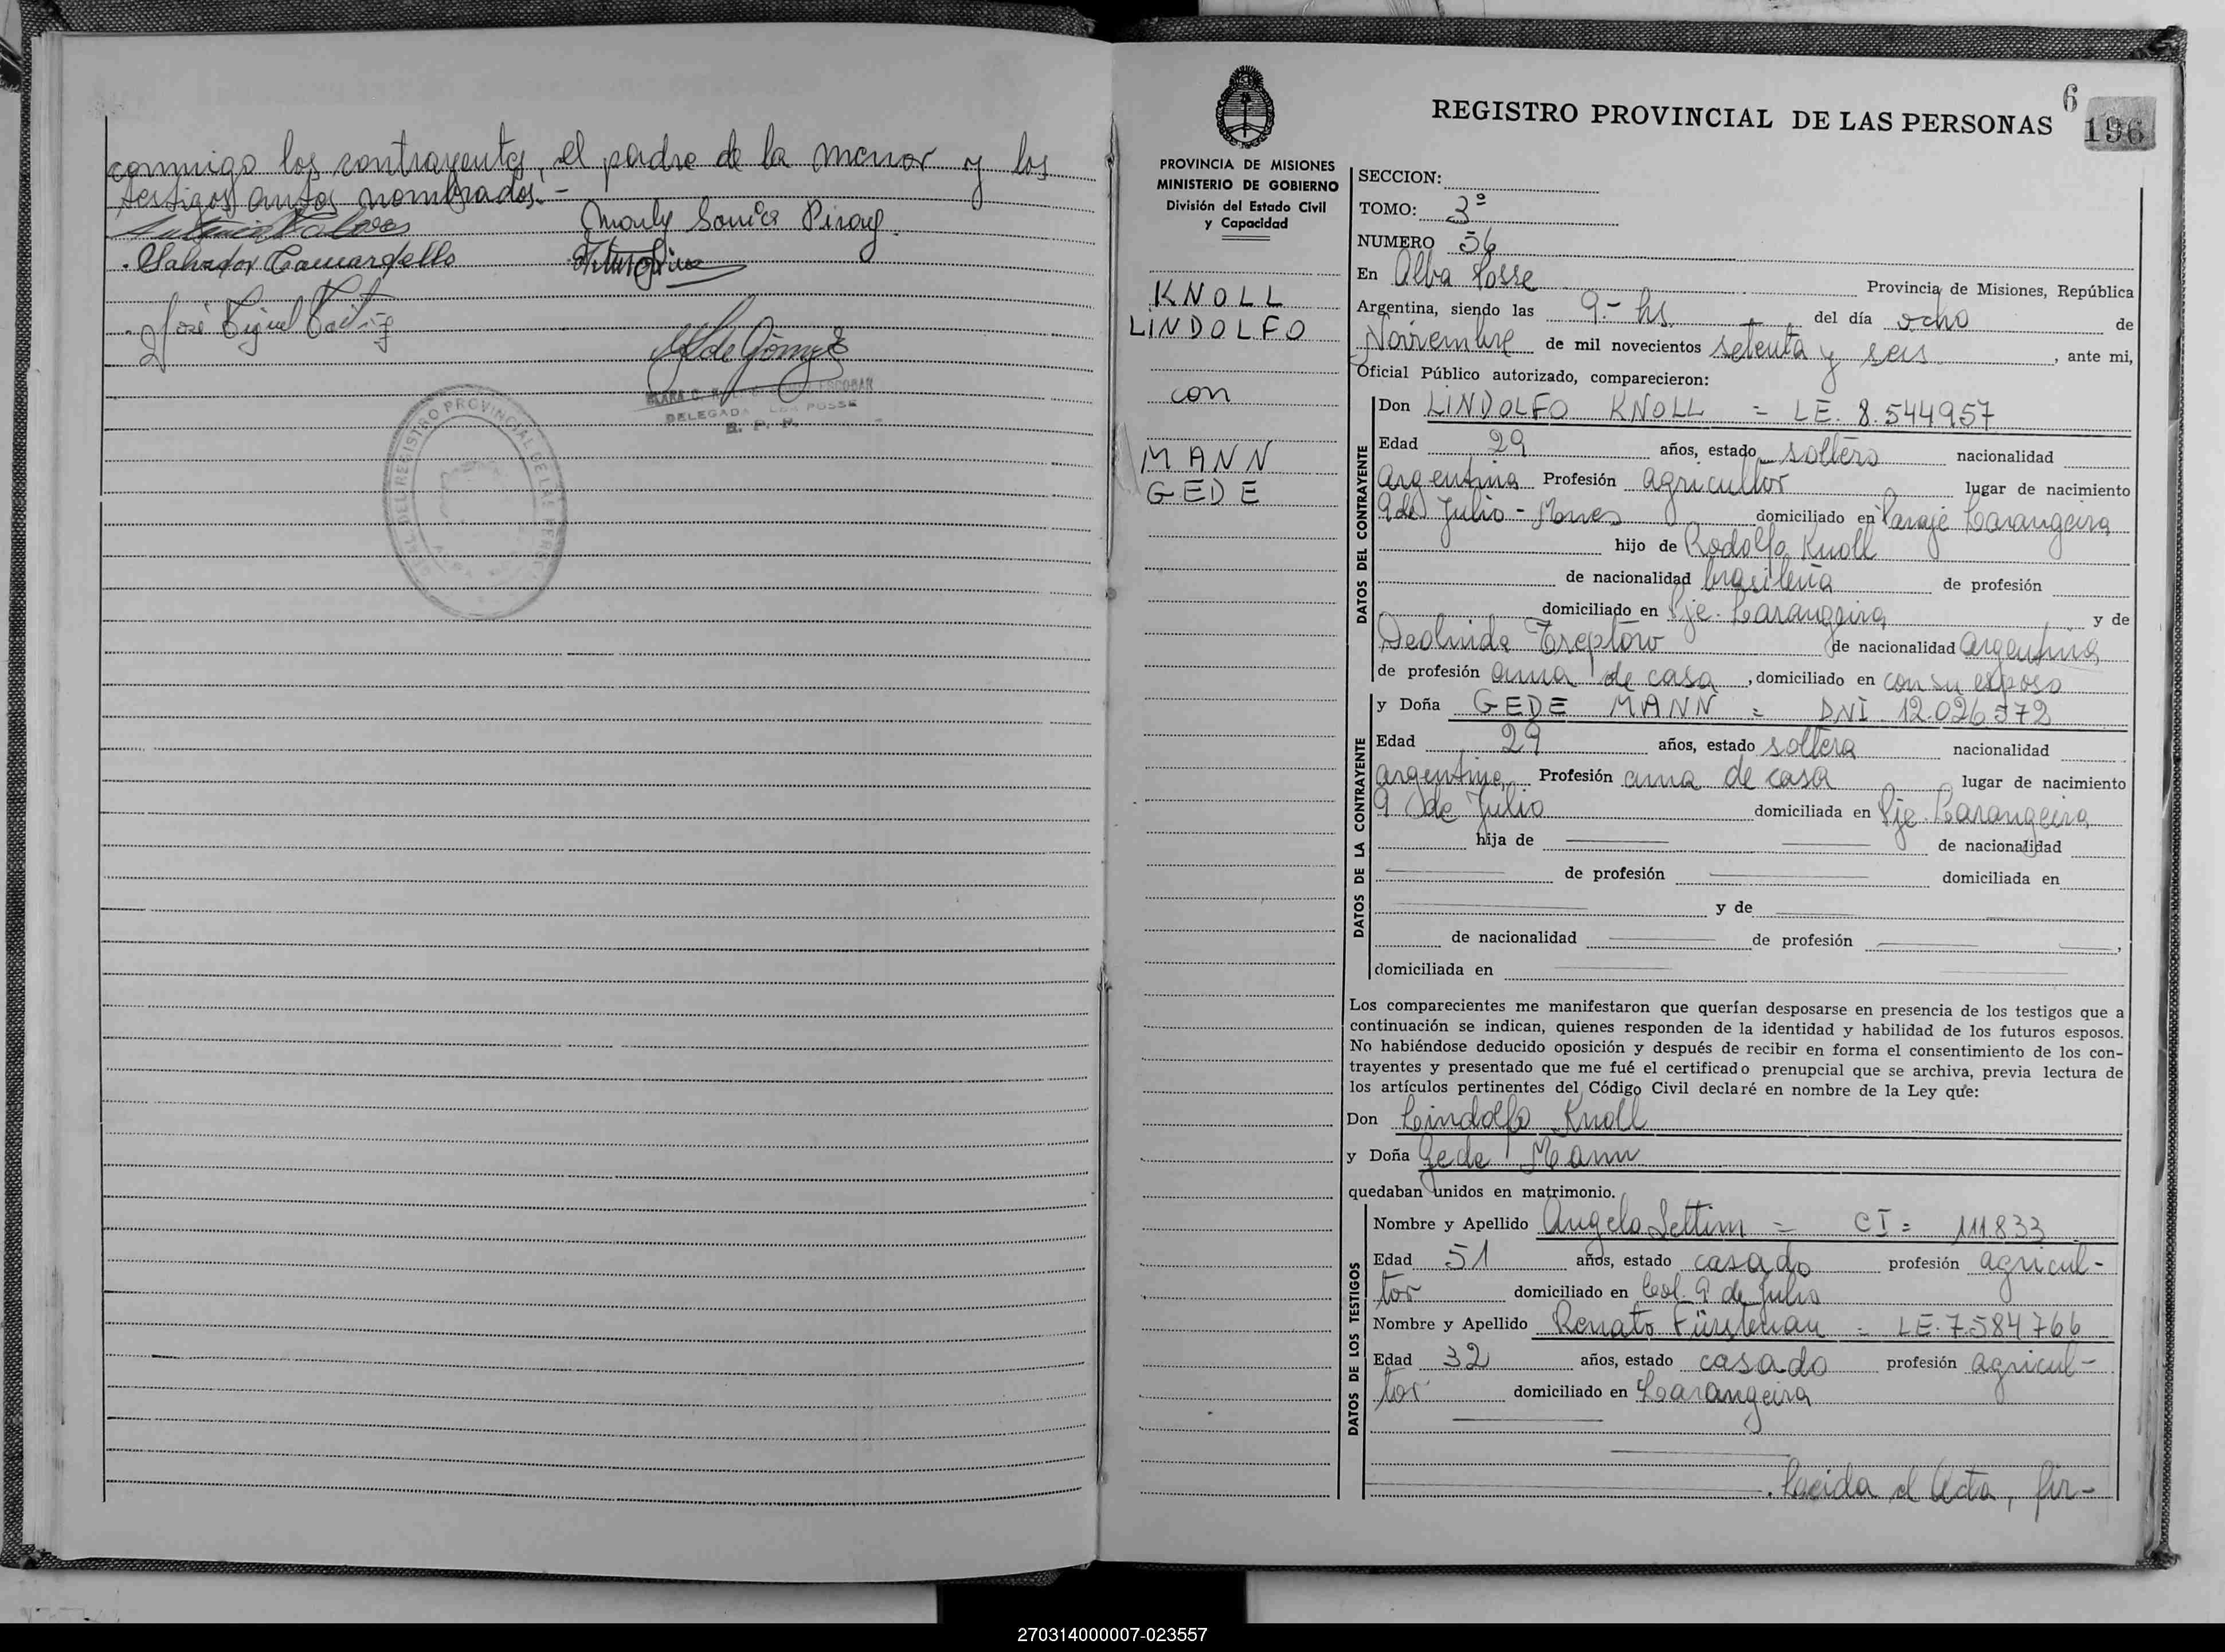 conmigo los contrayentes, el padre de la menor y los
testigos antes nombrados.-
Marly Sonia Pirag
Salvador Camardello
José Miguel
DELEGADA ALBA POSSE
R. P. P.
6
196
REGISTRO PROVINCIAL DE LAS PERSONAS
PROVINCIA DE MISIONES
MINISTERIO DE GOBIERNO
División del Estado Civil
y Capacidad
KNOLL
LINDOLFO
con
MANN
GEDE
SECCION:
TOMO: 3º
NUMERO 56
En Alba Posse Provincia de Misiones, República
Argentina, siendo las 9.- hs. del día ocho de
Noviembre de mil novecientos setenta y seis, ante mi,
Oficial Público autorizado, comparecieron:
DATOS DEL CONTRAYENTE
Don LINDOLFO KNOLL = LE. 8.544957
Edad 29 años, estado soltero nacionalidad
argentina Profesión agricultor lugar de nacimiento
9 de Julio - Mnes domiciliado en Paraje Larangeira
hijo de Rodolfo Knoll
de nacionalidad brasileña de profesión
domiciliado en Pje. Larangeira y de
Deolinda Treptow de nacionalidad argentina
de profesión ama de casa, domiciliado en con su esposo
DATOS DE LA CONTRAYENTE
y Doña GEDE MANN = DNI 12.026572
Edad 29 años, estado soltera nacionalidad
argentina Profesión ama de casa lugar de nacimiento
9 de Julio domiciliada en Pje. Larangeira
hija de de nacionalidad
de profesión domiciliada en
y de
de nacionalidad de profesión ,
domiciliada en
Los comparecientes me manifestaron que querían desposarse en presencia de los testigos que a
continuación se indican, quienes responden de la identidad y habilidad de los futuros esposos.
No habiéndose deducido oposición y después de recibir en forma el consentimiento de los con-
trayentes y presentado que me fué el certificado prenupcial que se archiva, previa lectura de
los artículos pertinentes del Código Civil declaré en nombre de la Ley que:
Don Lindolfo Knoll
y Doña Gede Mann
quedaban unidos en matrimonio.
DATOS DE LOS TESTIGOS
Nombre y Apellido Angelo Settim = CI = 111.833
Edad 51 años, estado casado profesión agricul-
tor domiciliado en Col. 9 de Julio
Nombre y Apellido Renato Fürstenau = LE. 7.584766
Edad 32 años, estado casado profesión agricul-
tor domiciliado en Larangeira
. Leida el Acta, fir-
270314000007-023557